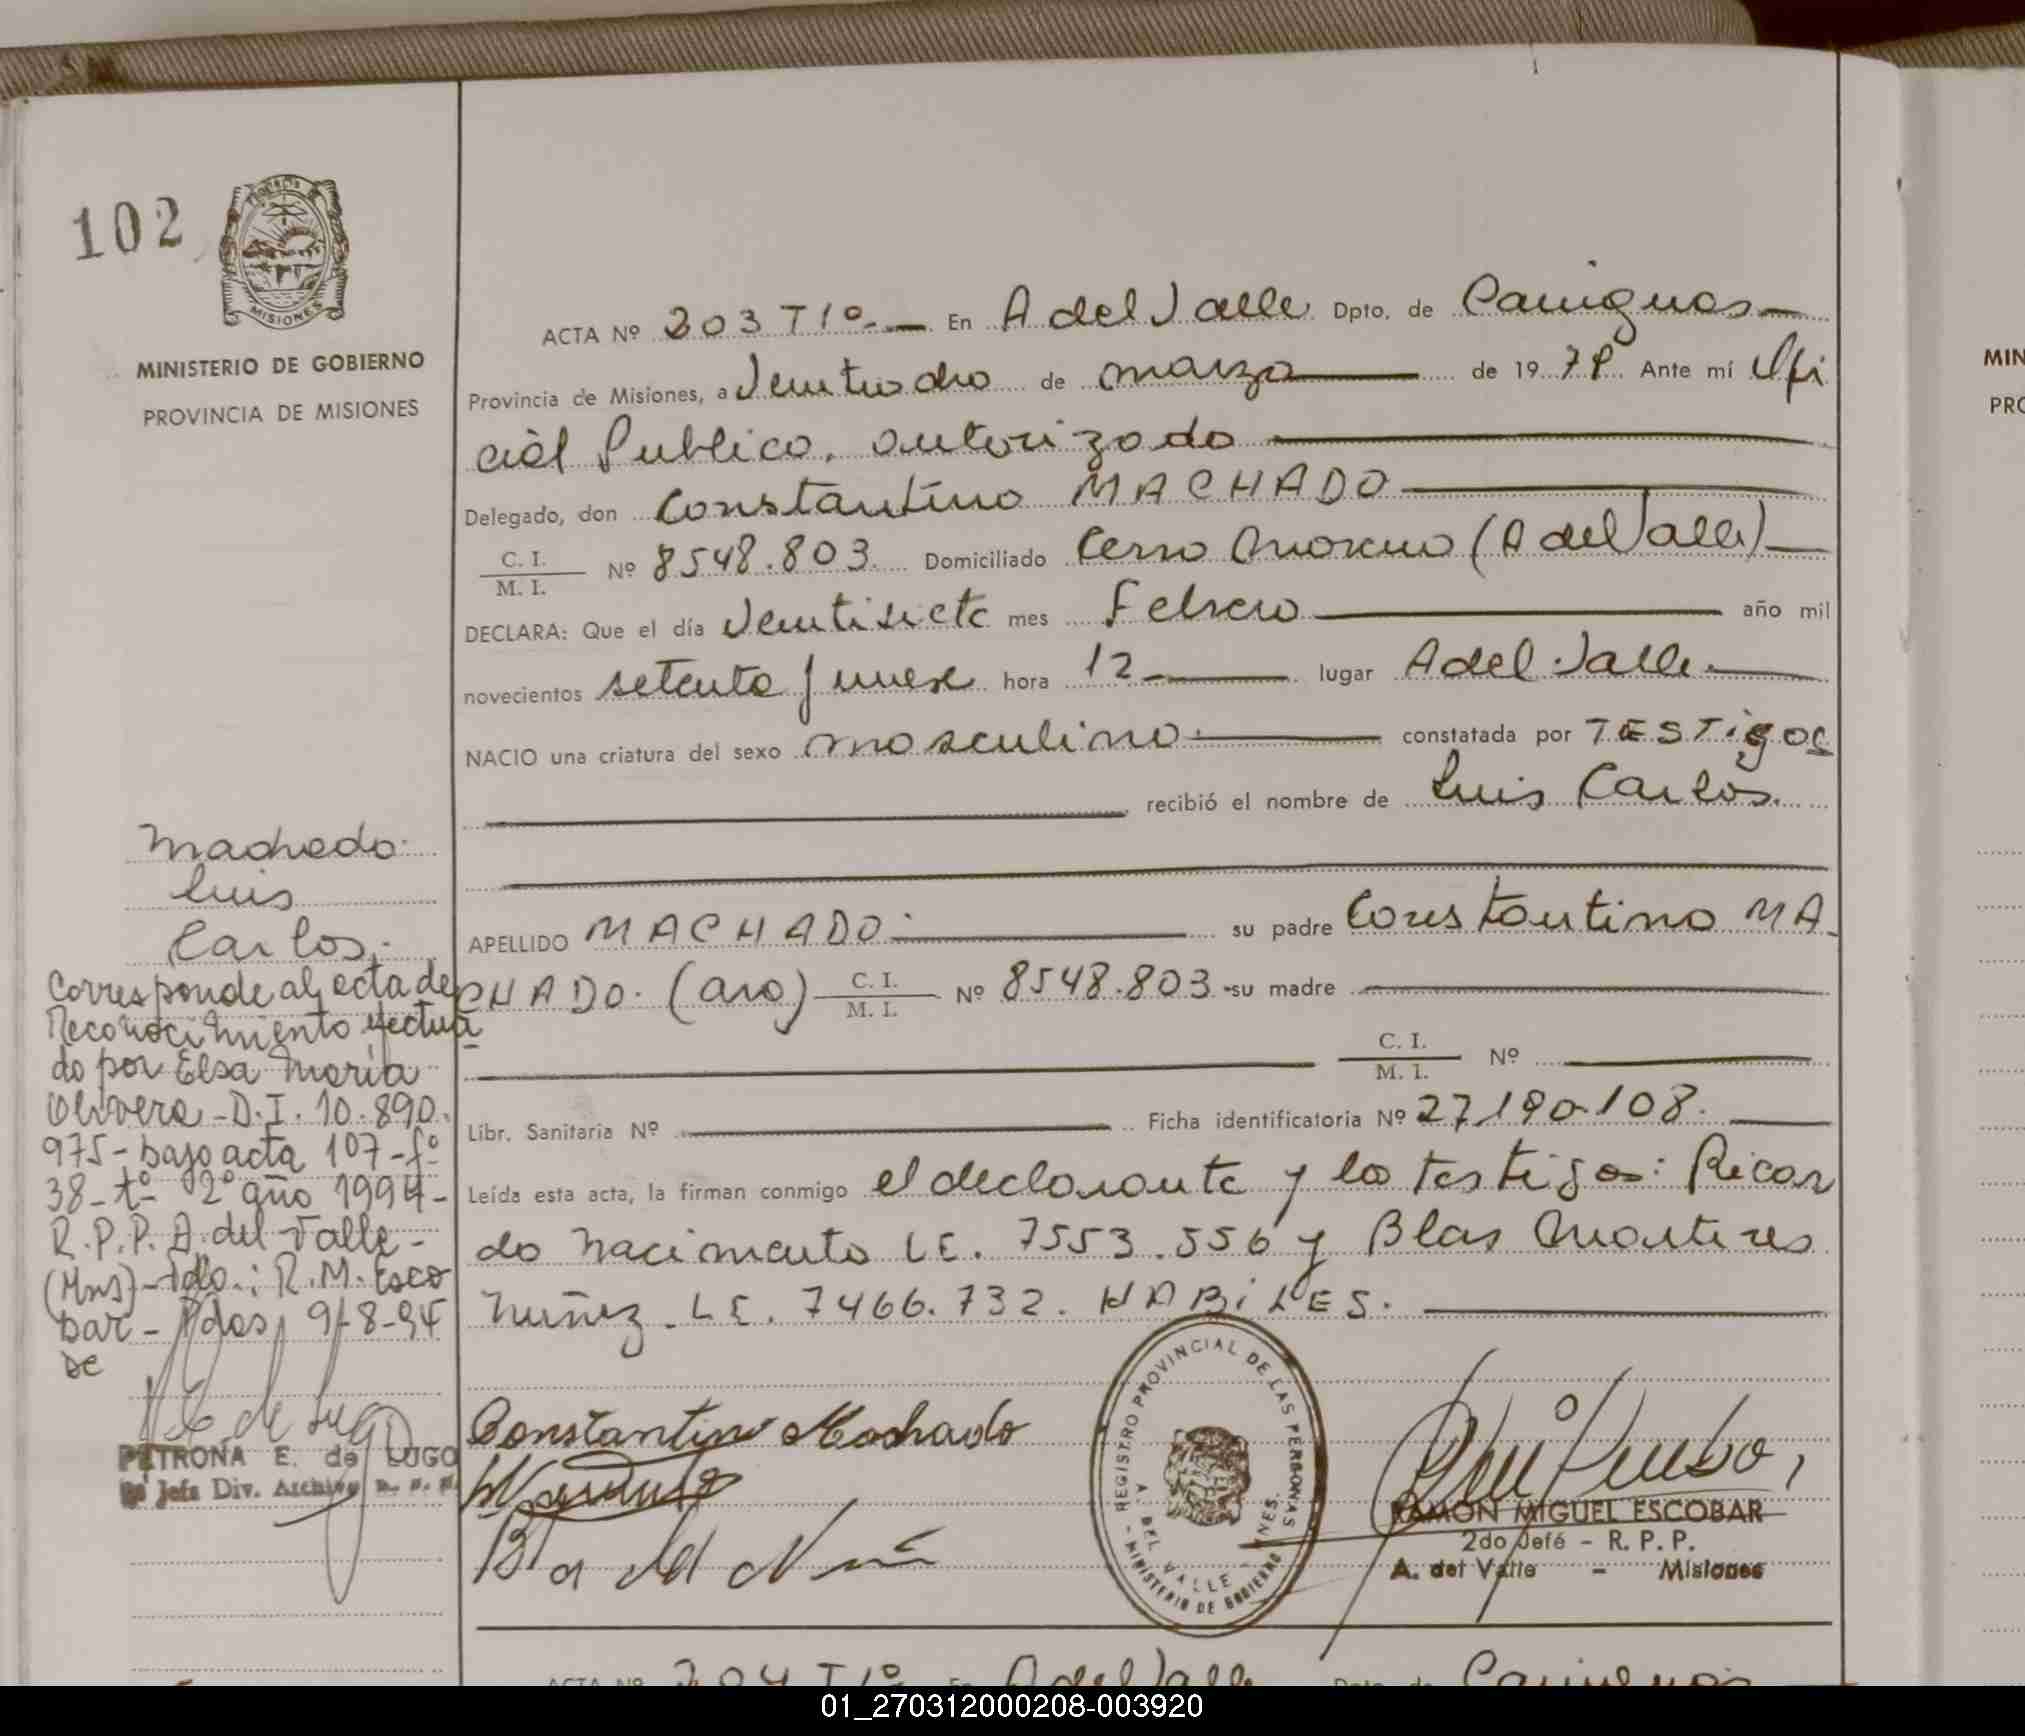 102
MISIONES
MINISTERIO DE GOBIERNO
PROVINCIA DE MISIONES
ACTA Nº 203 T1º. En A del Valle Dpto. de Cainguas
Provincia de Misiones, a Veintiocho de marzo de 1979 Ante mí Ofi
cial Publico, autorizado
Delegado, don Constantino MACHADO
C. I.
M. I. Nº 8548.803. Domiciliado Cerro Moreno (A del Valle)
DECLARA: Que el día Veintisiete mes Febrero año mil
novecientos setenta y nueve hora 12 lugar A del Valle.
NACIO una criatura del sexo masculino. constatada por TESTigos
recibió el nombre de Luis Carlos.
APELLIDO MACHADO. su padre Constantino MA
CHADO. (Arg) C. I.
M. I. Nº 8548.803 su madre
C. I.
M. I. Nº
Libr. Sanitaria Nº Ficha identificatoria Nº 27190108.
Leída esta acta, la firman conmigo el declarante y los testigos: Ricar
do Nacimento LE. 7553.556 y Blas Martires
Nuñez. LE. 7466.732. HABiLES.
Constantino Machado
REGISTRO PROVINCIAL DE LAS PERSONAS
A. DEL VALLE
MINISTERIO DE GOBIERNO
RAMON MIGUEL ESCOBAR
2do Jefe - R. P. P.
A. del Valle - Misiones
Machado.
Luis
Carlos.
Corresponde al acta de
Reconocimiento efectua
do por Elsa María
Olivera - D.I. 10.890.
975 - bajo acta 107 - fº
38 - tº 2º año 1994 -
R.P.P. A. del Valle -
(Mns) - Fdo.: R.M. Esco
bar - Pdas, 9-8-94
PETRONA E. de LUGO
Jefa Div. Archivo R. P. P.
MIN
PRO
ACTA Nº 204 T1º En A del Valle Dpto. de Cainguas
01_270312000208-003920